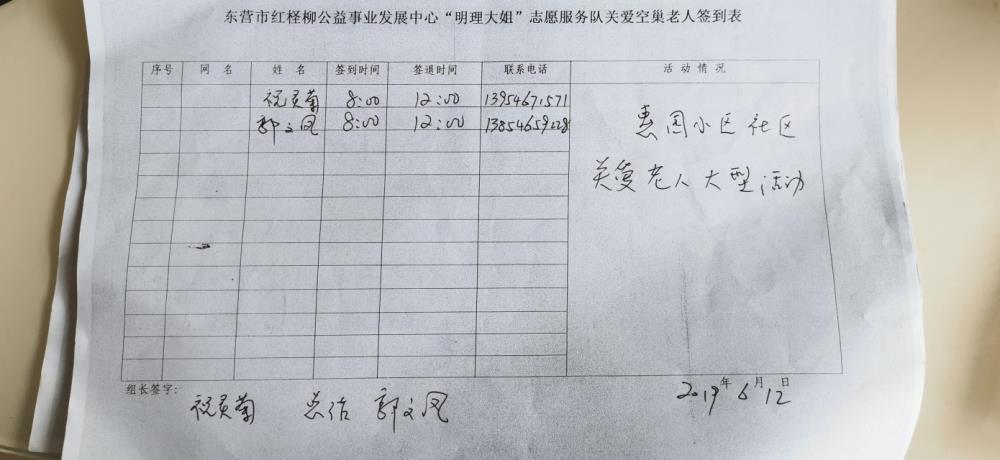 东营市红柽柳公益事业发展中心“明理大姐”志愿服务队关爱空巢老人签到表
序号 网名 姓名 签到时间 签退时间 联系电话 活动情况
祝灵菊 8:00 12:00 13954671571
郭文凤 8:00 12:00 13854659228
惠园小区社区
关爱老人大型活动
组长签字:
祝灵菊 郭文凤
2019年6月12日